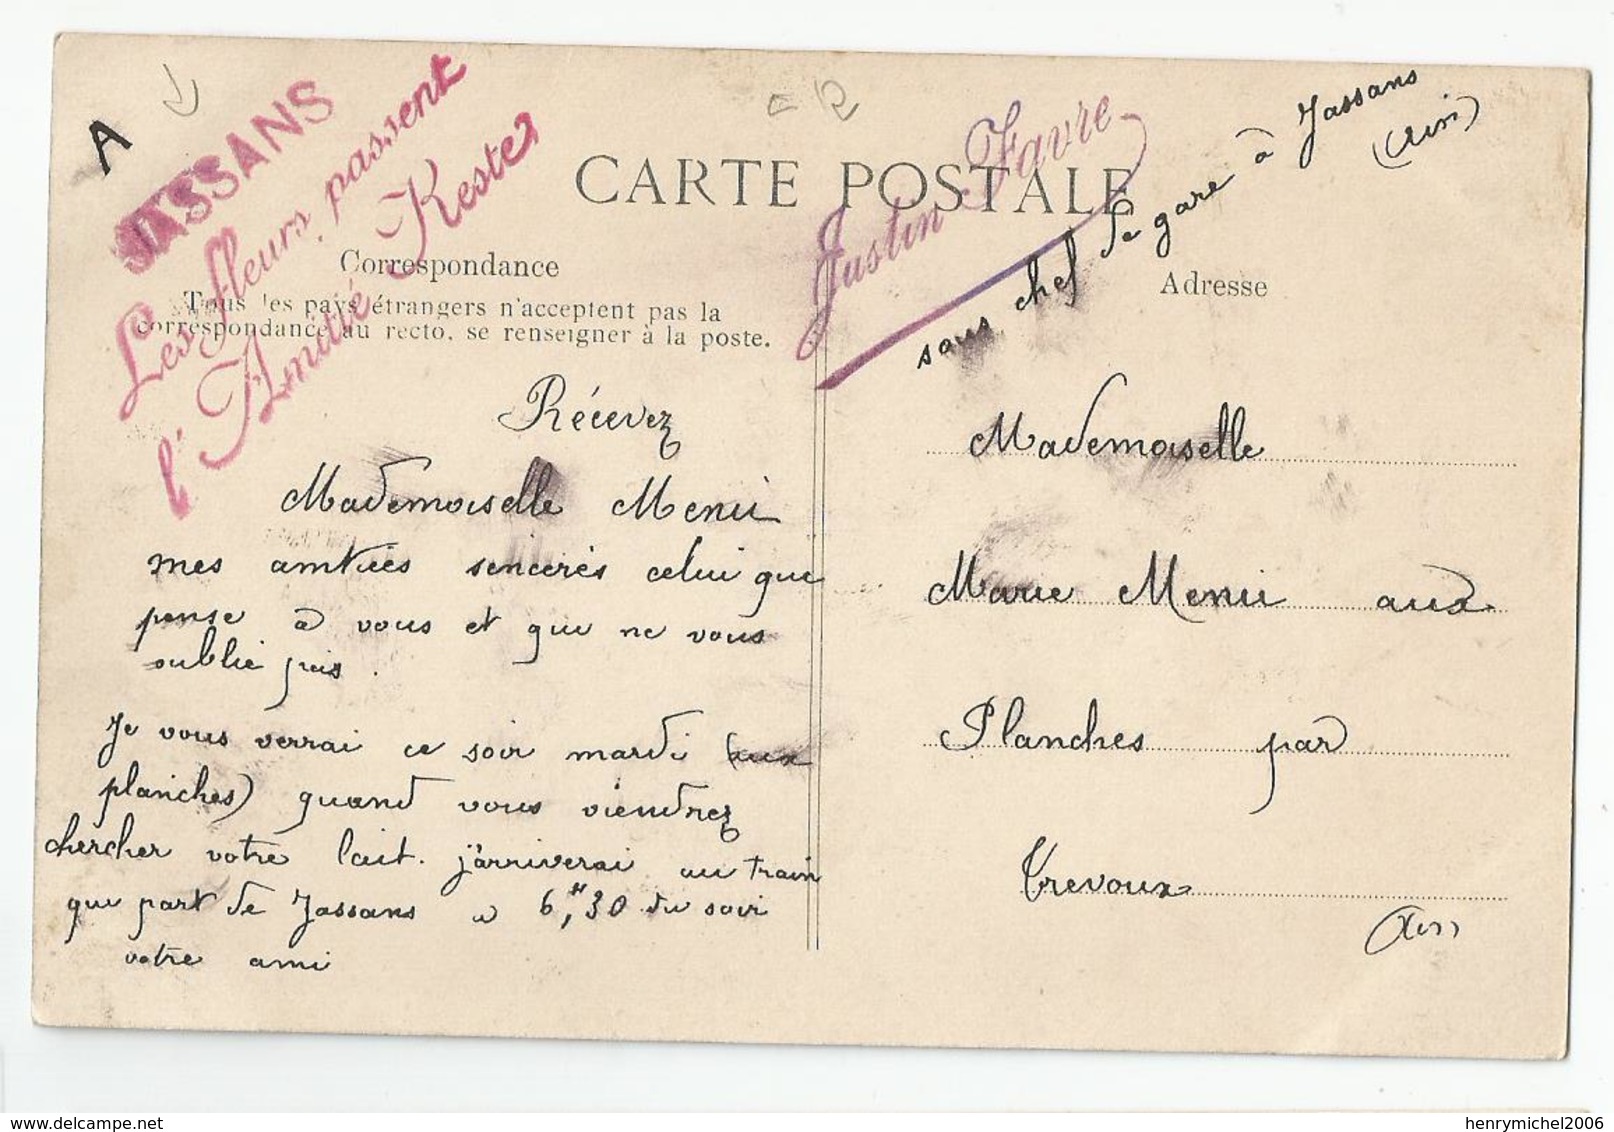 A
JASSANS
Les fleurs passent
l'Amitié Reste
CARTE POSTALE
Justin Favre
sous chef de gare à Jassans
(Ain)
Correspondance
Tous les pays étrangers n'acceptent pas la
correspondance au recto, se renseigner à la poste.
Récevez
Mademoiselle Menu
mes amitiés sincerès celui que
pense a vous et que ne vous
oublie pas.
Je vous verrai ce soir mardi (aux
planches) quand vous viendrez
chercher votre lait. j'arriverai au train
que part de Jassans a 6,H30 du soir
votre ami
Adresse
Mademoiselle
Marie Menu aux
Planches par
Trevoux
(Ain)
henrymichel2006